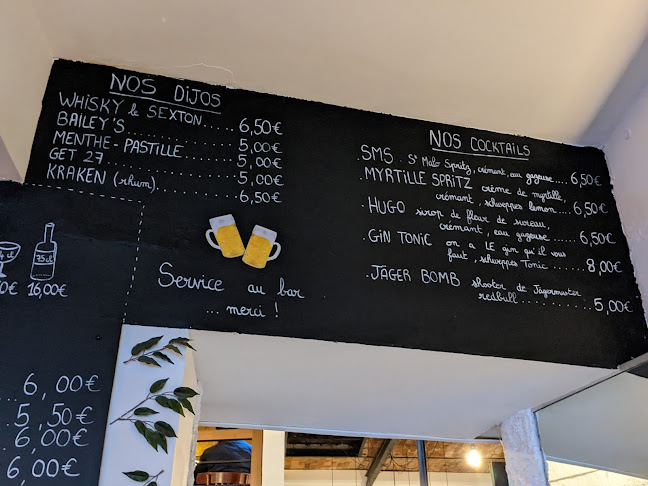 NOS DiJOS
WHiSKY le SEXTON...... 6,50€
BAILEY'S ................ 5,00€
MENTHE-PASTILLE ......... 5,00€
GET 27 .................. 5,00€
KRAKEN (rhum)............ 6,50€
Service au bar
... merci !
NOS COCKTAILS
.SMS . St Malo Spritz, crémant, eau gazeuse.... 6,50€
.MYRTILLE SPRITZ crème de myrtille,
crémant, schweppes lemon.... 6,50€
.HUGO sirop de fleur de sureau,
crémant, eau gazeuse..... 6,50€
.GIN TONIC on a LE gin qu'il vous
faut, schweppes Tonic........ 8,00€
.JÄGER BOMB shooter de Jägermaster
redbull .............. 5,00€
75cl
0€ 16,00€
... 6,00€
... 5,50€
... 6,00€
6,00€